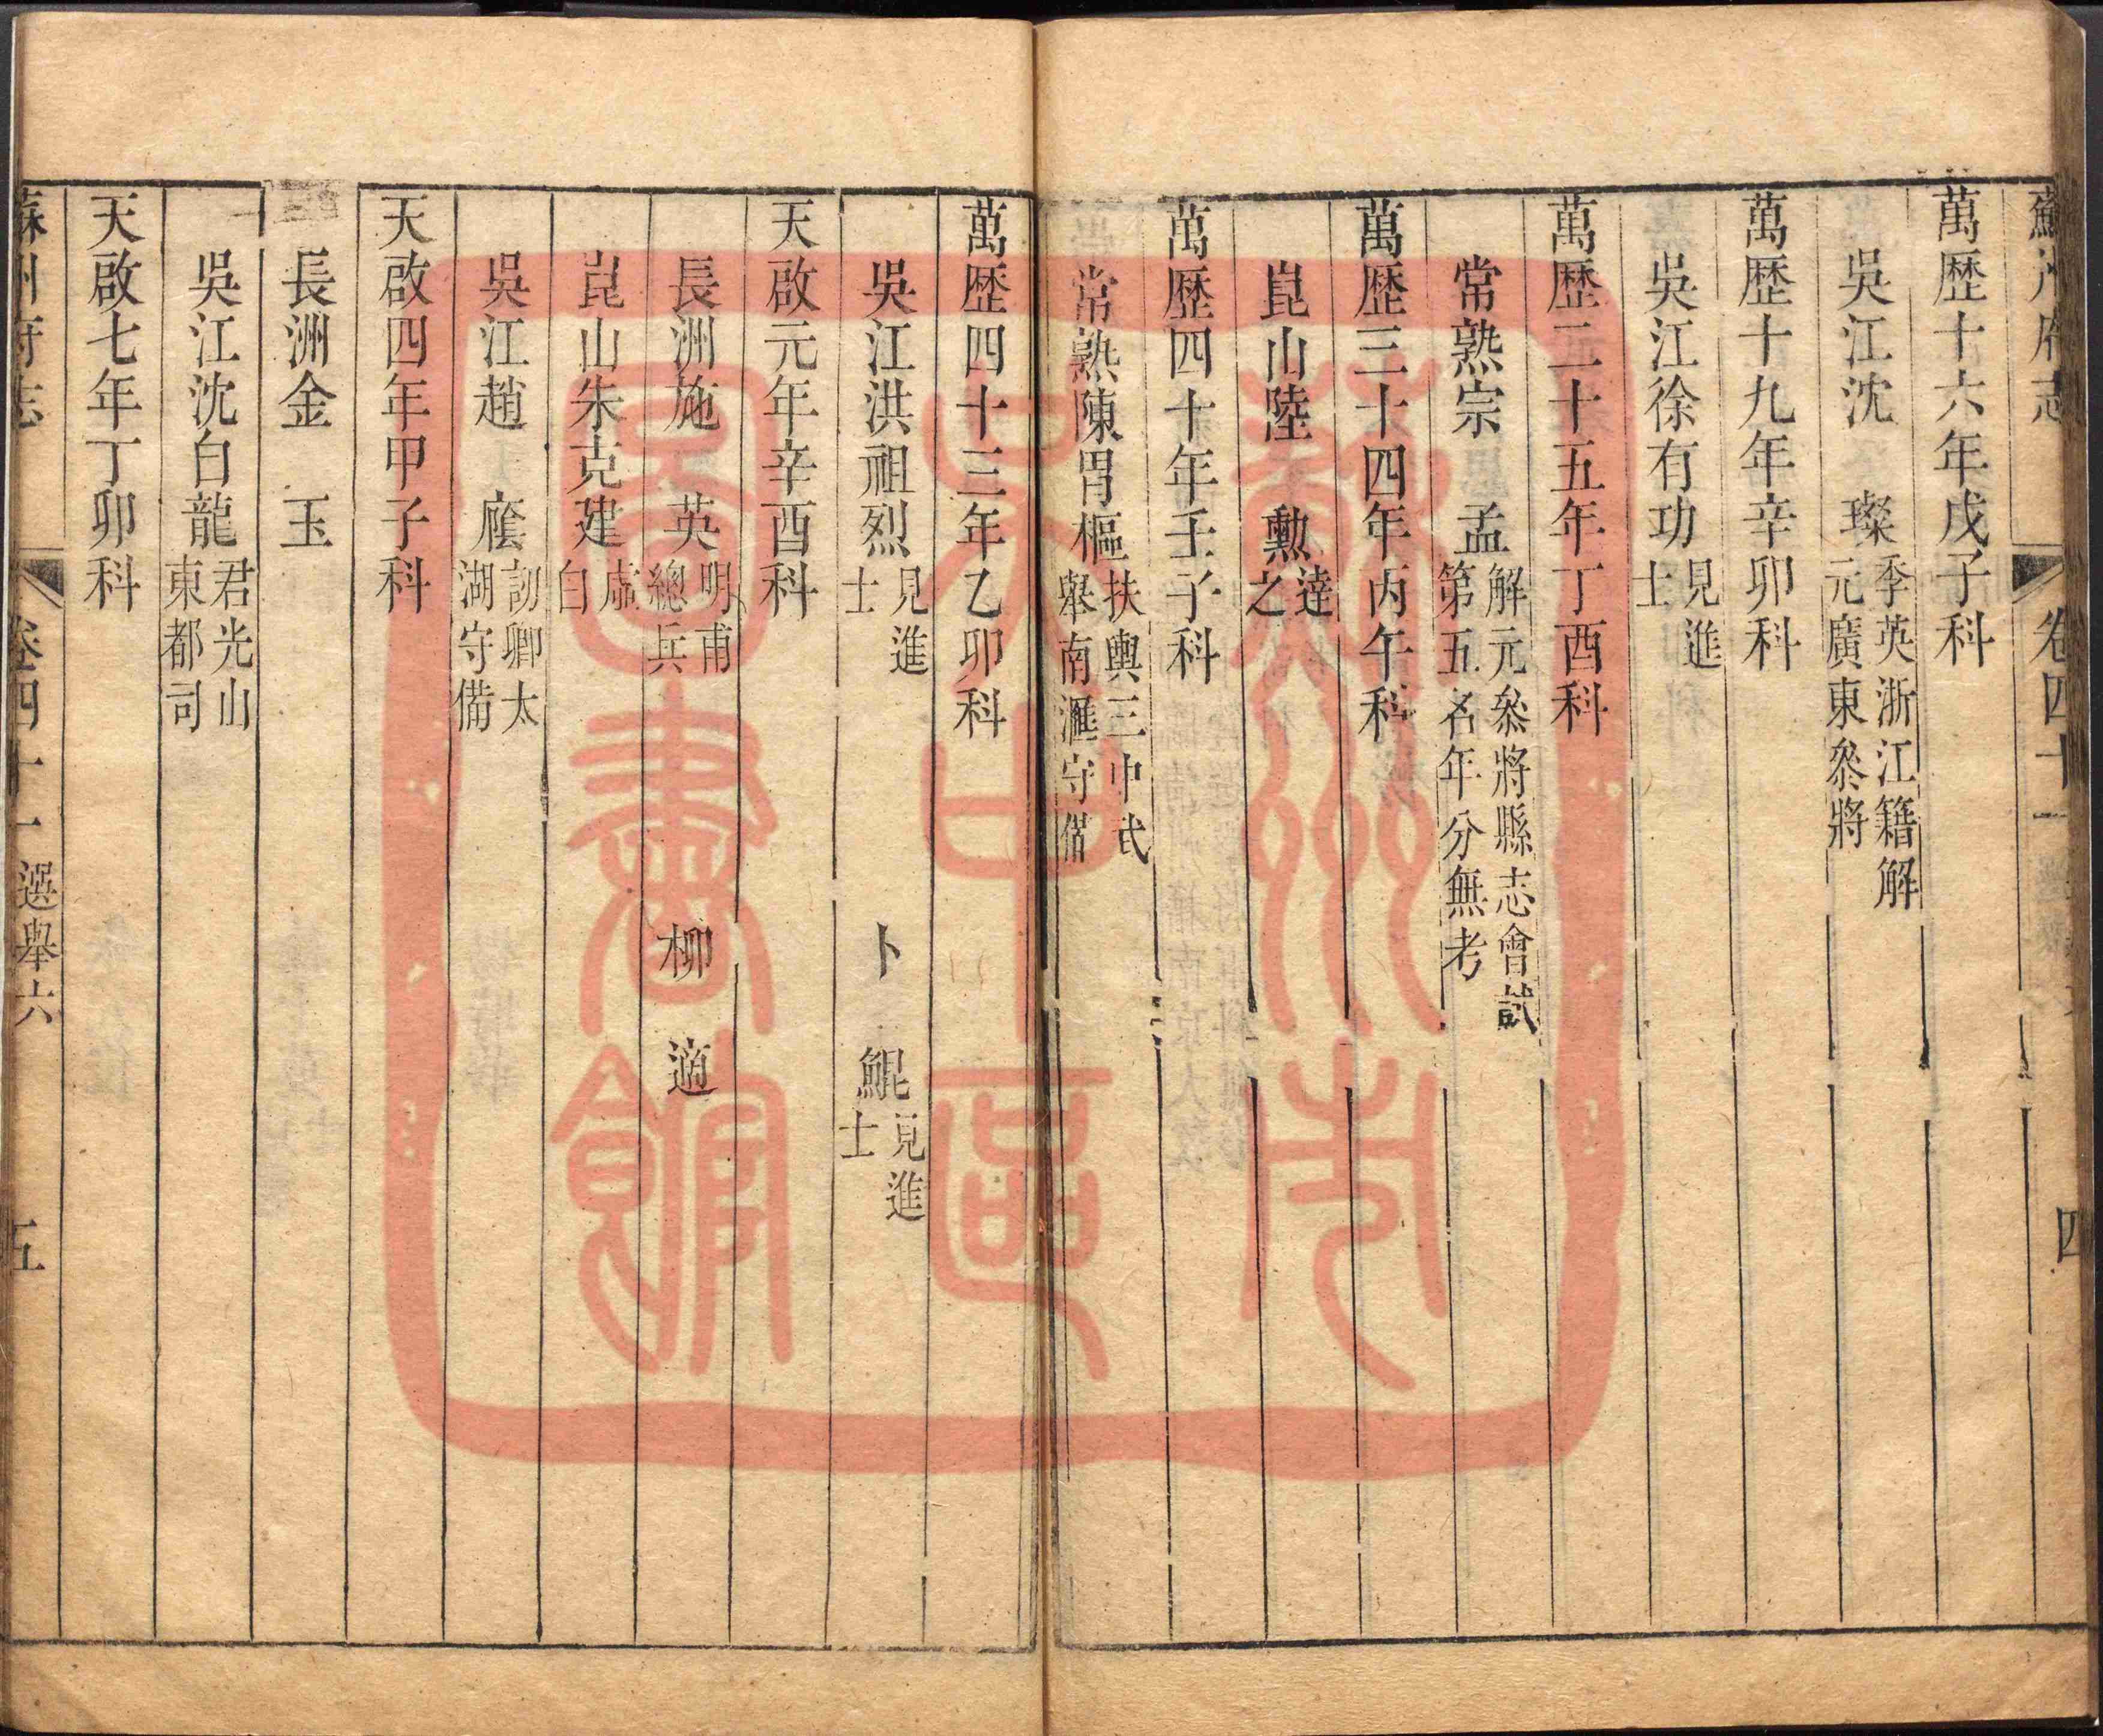 蘇州府志 卷四十一 四
萬歴十六年戊子科
吳江沈 璨 季英浙江籍解元廣東叅將
萬歴十九年辛卯科
吳江徐有功 見進士
萬歴二十五年丁酉科
常熟宗 孟 解元叅將縣志會試第五名年分無考
萬歴三十四年丙午科
崑山陸 勲 達之
萬歴四十年壬子科
常熟陳胃樞 扶輿三中武舉南滙守備
萬歴四十三年乙卯科
吳江洪祖烈 見進士 卜 鯤 見進士
天啟元年辛酉科
長洲施 英 明甫總兵 柳 適
崑山朱克建 白
吳江趙 廕 訒卿太湖守備
天啟四年甲子科
長洲金 玉
吳江沈白龍 君光山東都司
天啟七年丁卯科
蘇州府志 卷四十一 選舉六 五
蘇州市
書館